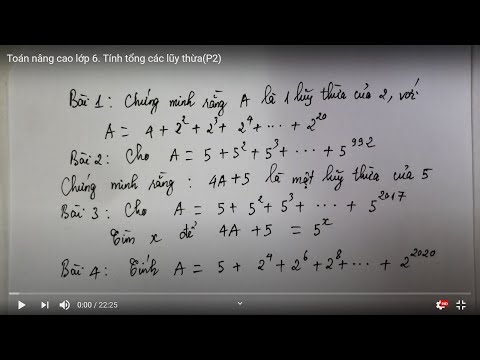 Toán nâng cao lớp 6. Tính tổng các lũy thừa(P2)
Bài 1: Chứng minh rằng A là 1 lũy thừa của 2, với
A = 4 + 2² + 2³ + 2⁴ + ... + 2²⁰
Bài 2: Cho A = 5 + 5² + 5³ + ... + 5⁹⁹²
Chứng minh rằng : 4A+5 là một lũy thừa của 5
Bài 3 : Cho A = 5 + 5² + 5³ + ... + 5²⁰¹⁷
Tìm x để 4A + 5 = 5ˣ
Bài 4: Tính A = 5 + 2⁴ + 2⁶ + 2⁸ + ... + 2²⁰²⁰
0:00 / 22:25
HD